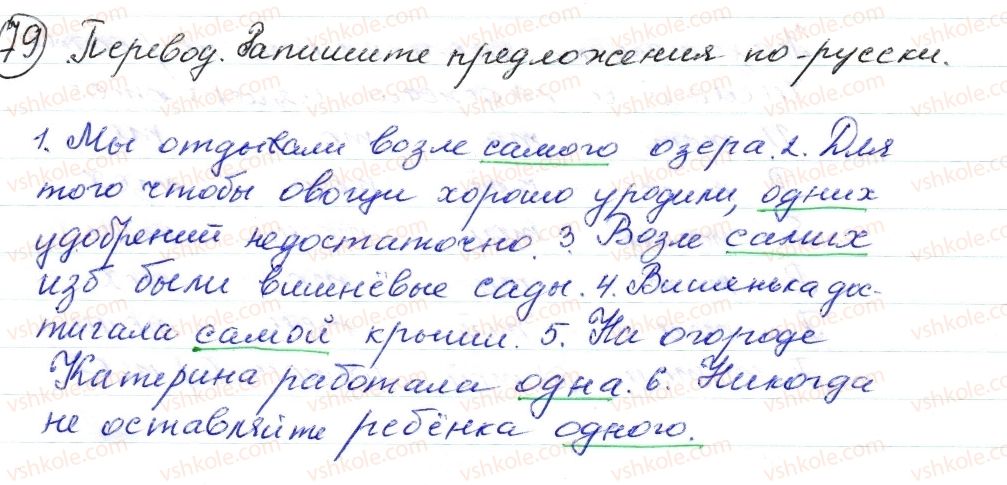 79 Перевод. Запишите предложения по-русски.
1. Мы отдыхали возле самого озера. 2. Для
того чтобы овощи хорошо уродили, одних
удобрений недостаточно. 3. Возле самих
изб были вишнёвые сады. 4. Вишенька дос-
тигала самой крыши. 5. На огороде
Катерина работала одна. 6. Никогда
не оставляйте ребёнка одного.